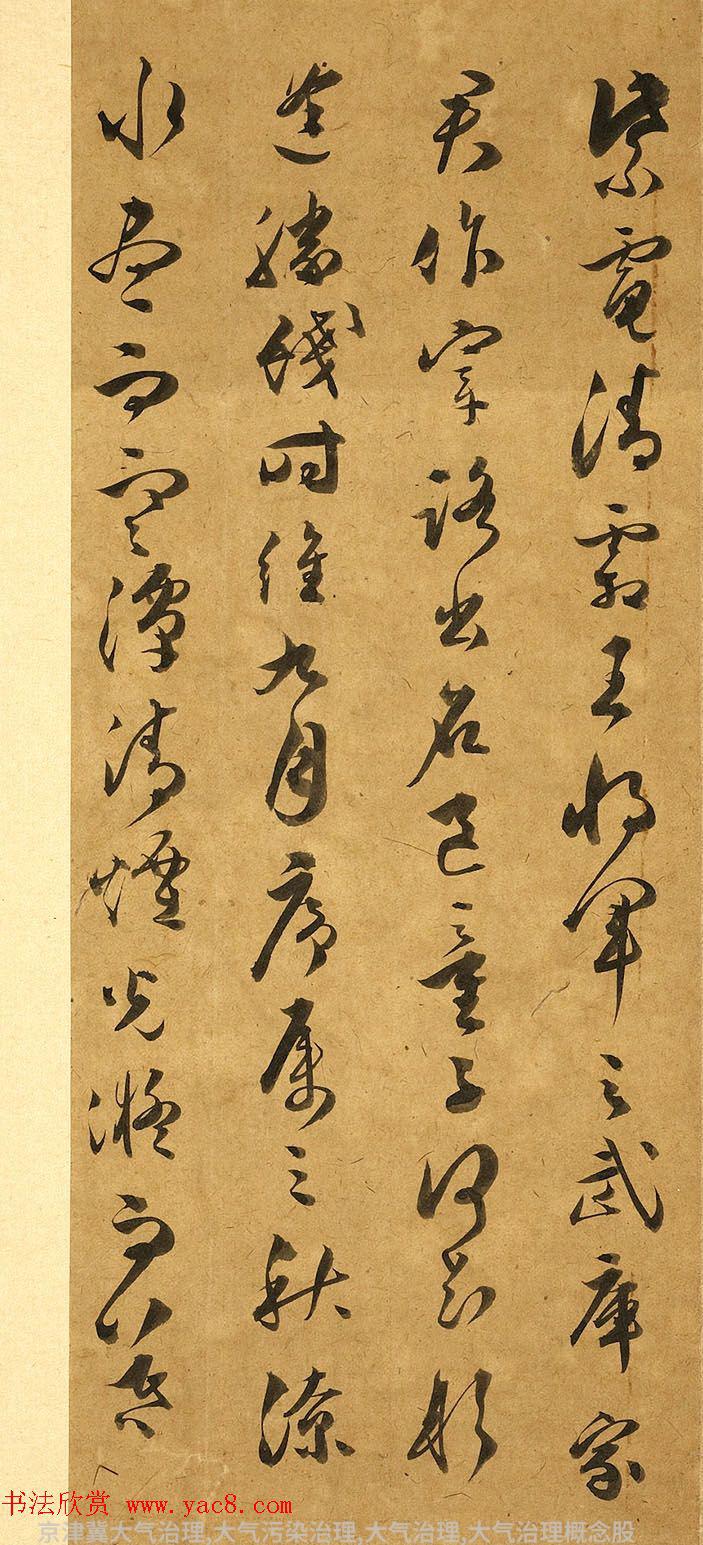 紫電清霜王将軍之武庫家
君作宰路出名區童子何知躬
逢勝餞時維九月序屬三秋潦
水盡而寒潭清煙光凝而暮
书法欣赏 www.yac8.com
京津冀大气治理,大气污染治理,大气治理,大气治理概念股